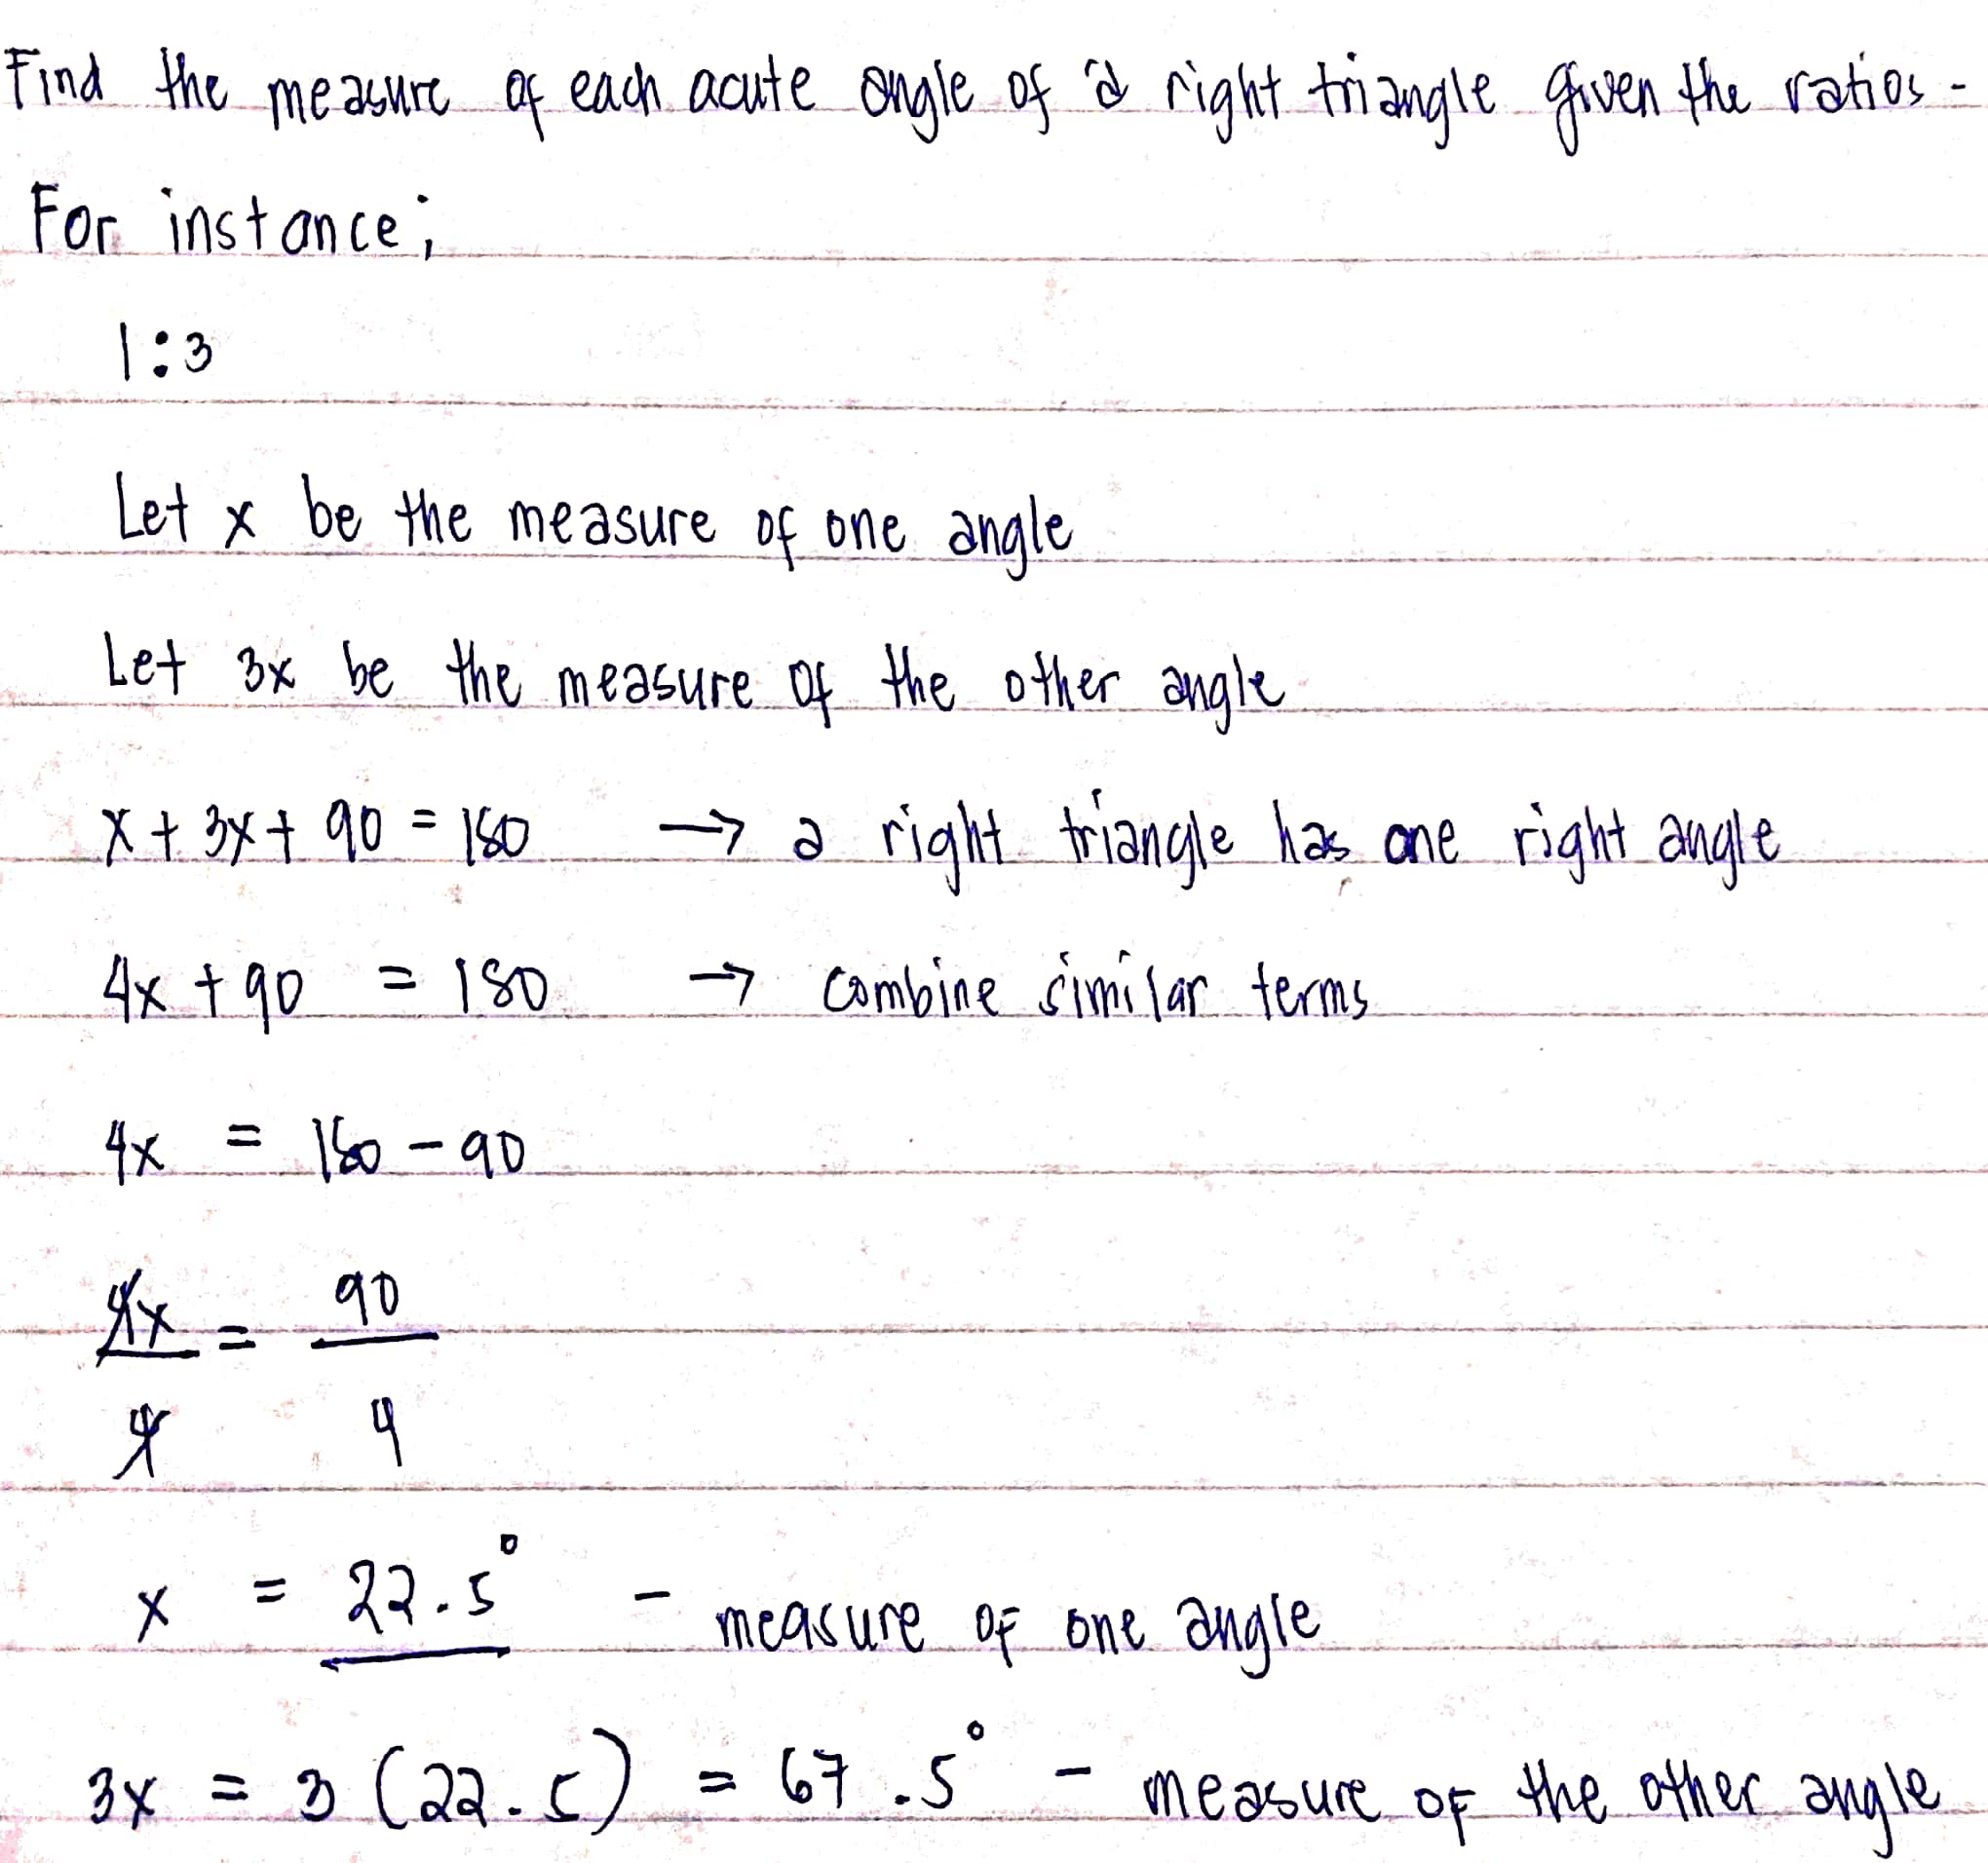 Find the measure of each acute angle of a right triangle given the ratios -
For instance;
1:3
Let x be the measure of one angle
Let 3x be the measure of the other angle
x + 3x + 90 = 180 → a right triangle has one right angle
4x + 90 = 180 → combine similar terms
4x = 180 - 90
4x = 90
4 4
x = 22.5° - measure of one angle
3x = 3 (22.5) = 67.5° - measure of the other angle